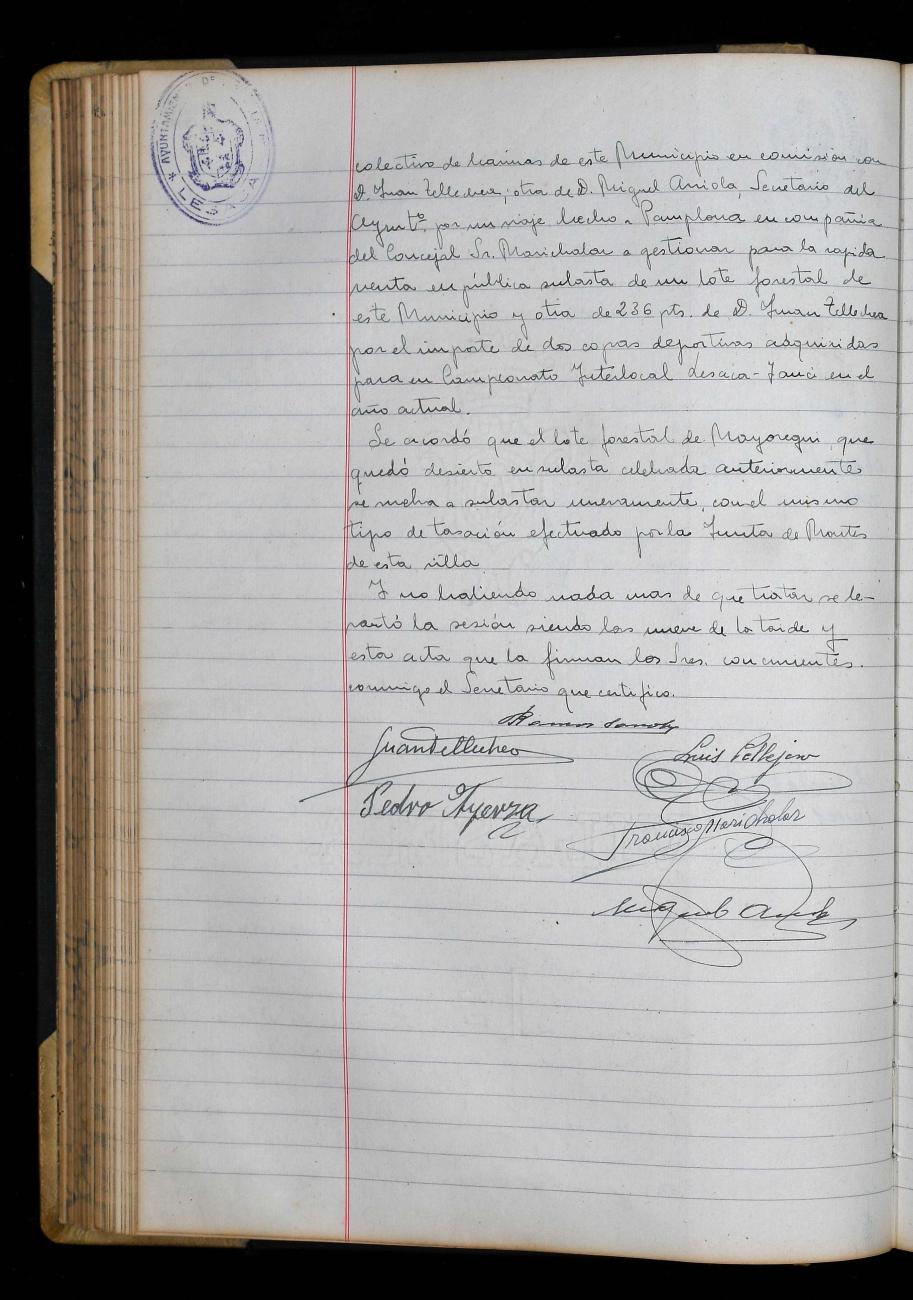 AYUNTAMIENTO DE LA
LESACA
colectivo de harinas de este Municipio en comisión con
D. Juan Tellechea; otra de D. Miguel Arriola, Secretario del
Ayuntº. por un viaje hecho a Pamplona en compañia
del Concejal Sr. Marichalar a gestionar para la rapida
venta en pública subasta de un lote forestal de
este Municipio y otra de 236 pts. de D. Juan Tellechea
por el importe de dos copas deportivas adquiridas
para en Campeonato Interlocal Lesaca-Yanci en el
año actual.
Se acordó que el lote forestal de Mayoregui que
quedó desierto en subasta celebrada anteriormente
se vuelva a subastar nuevamente, con el mismo
tipo de tasación efectuado por la Junta de Montes
de esta villa.
Y no habiendo nada mas de que tratar se le-
vantó la sesión siendo las nueve de la tarde y
esta acta que la firman los Sres. concurrentes.
conmigo el Secretario que certifico.
Juan Tellechea
Luis
Pedro Ayerza
Francisco Marichalar
Miguel